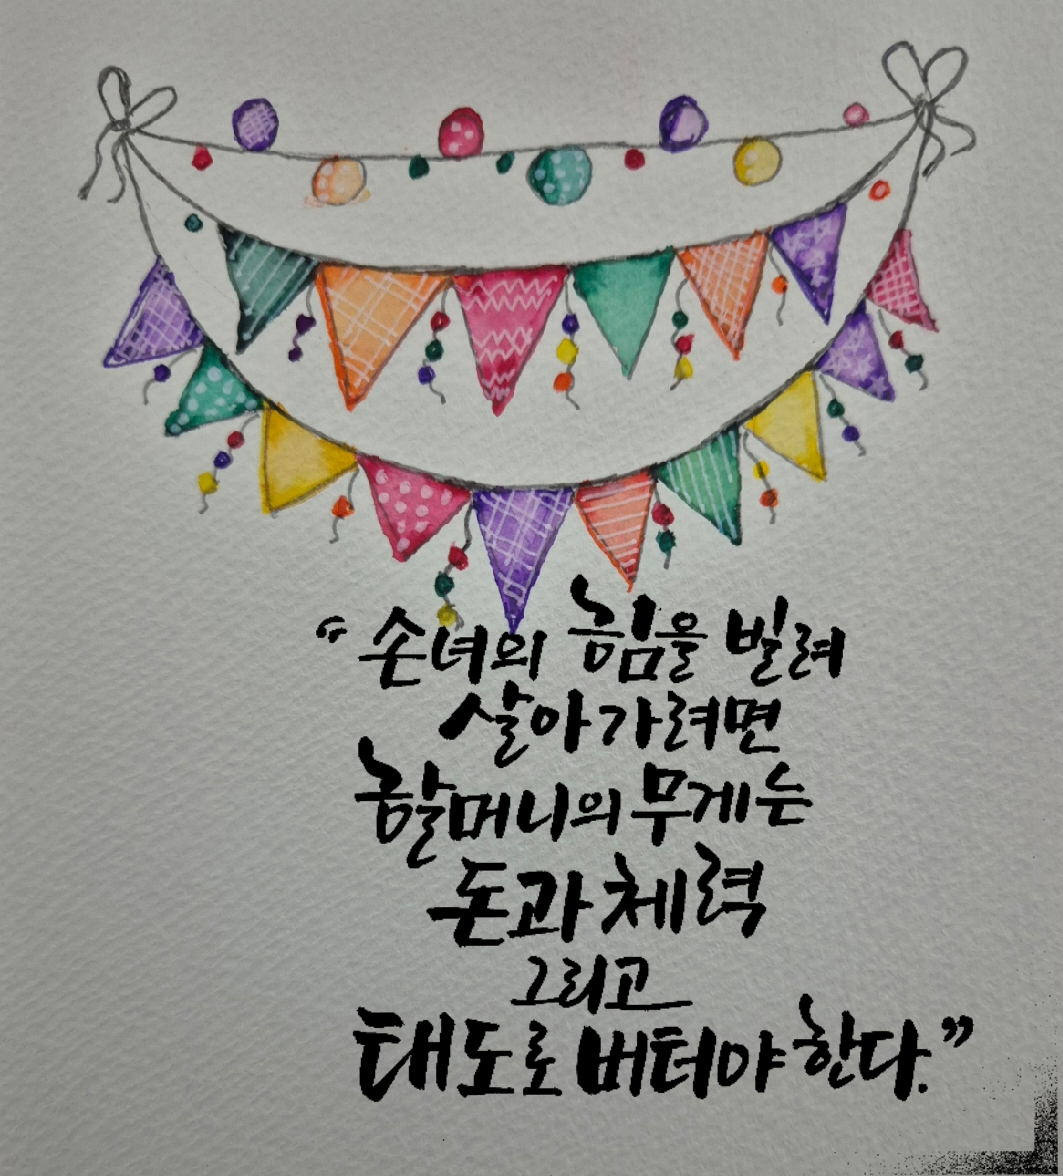 “손녀의 힘을 빌려
살아가려면
할머니의 무게는
돈과 체력
그리고
태도로 버텨야 한다.”